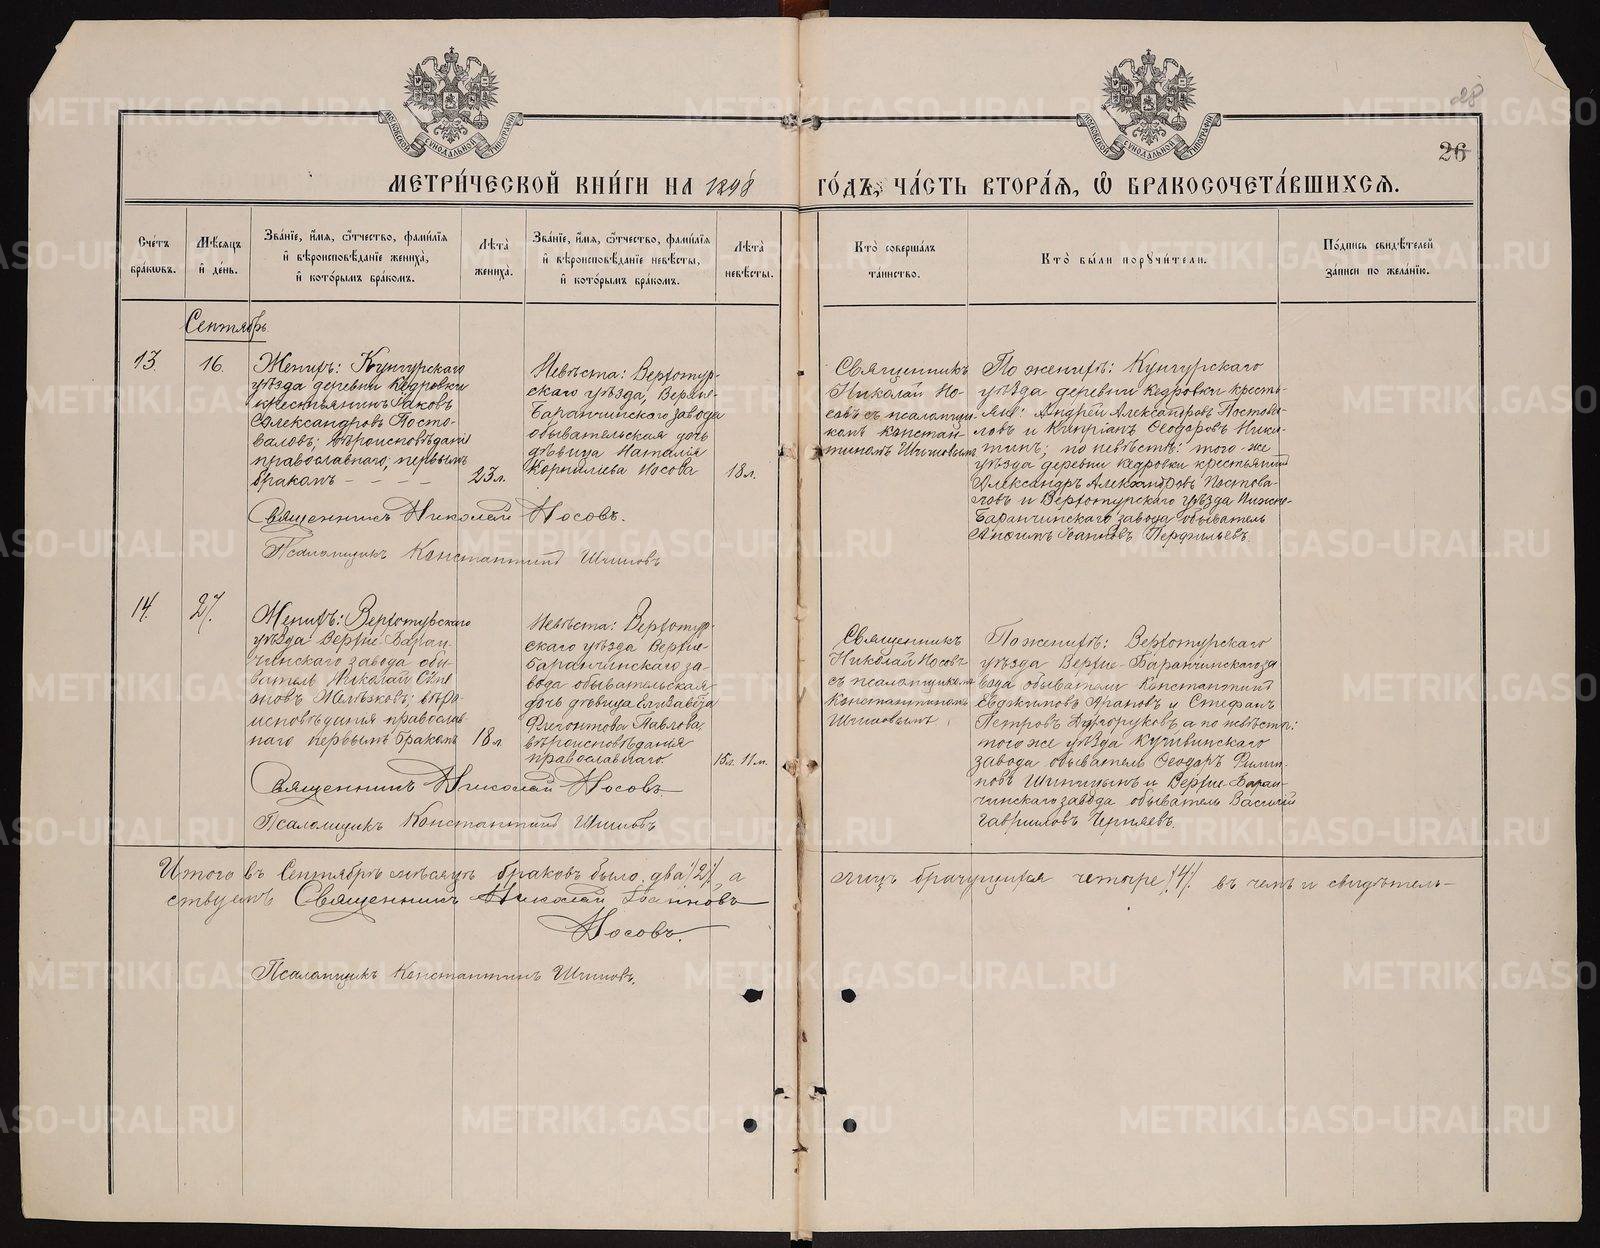 28
26
МЕТРИ́ЧЕСКОЙ КНИ́ГИ НА 1898 ГО́ДЪ, ЧА́СТЬ ВТОРА́Я, Ѡ БРАКОСОЧЕТА́ВШИХСЯ.
Сче́тъ бра́ковъ.
Мѣ́сяцъ и́ де́нь.
Зва́нїе, и́мя, ѻ́тчество, фами́лїя и́ вѣроисповѣ́данїе жениха̀, и́ кото́рымъ бра́комъ.
Лѣ́та̀ жениха̀.
Зва́нїе, и́мя, ѻ́тчество, фами́лїя и́ вѣроисповѣ́данїе невѣ́сты, и́ кото́рымъ бра́комъ.
Лѣ́та̀ невѣ́сты.
Кто̀ соверша́лъ та́инство.
Кто̀ бы́ли поручи́тели.
По́дпись свидѣ́телей за́писи по жела́нїю.
Сентябрь
13.
16.
Женихъ: Кунгурскаго
уѣзда деревни Кедровки
крестьянинъ Іаковъ
Александровъ Посто-
валовъ; вѣроисповѣданія
православнаго, первымъ
бракомъ - - - -
23 л.
Невѣста: Верхотур-
скаго уѣзда, Верхне-
Баранчинскаго завода
обывательская дочь
дѣвица Наталія
Корнилiева Носова
18 л.
Священникъ
Николай Но-
совъ съ псаломщи-
комъ Констан-
тиномъ Шишовымъ
По женихѣ: Кунгурскаго
уѣзда деревни Кедровки кресть-
яне: Андрей Александровъ Постова-
ловъ и Кипріанъ Ѳеодоровъ Ники-
тинъ; по невѣстѣ: того-же
уѣзда деревни Кедровки крестьянинъ
Александръ Александровъ Постова-
ловъ и Верхотурскаго уѣзда Нижне-
Баранчинскаго завода обыватель
Іоанновъ Перфильевъ.
Священникъ Николай Носовъ.
Псаломщикъ Константинъ Шишовъ
14.
27.
Женихъ: Верхотурскаго
уѣзда Верхне-Баран-
чинскаго завода обы-
ватель Николай Симе-
оновъ Желѣзковъ; вѣро-
исповѣданія православ-
наго первымъ бракомъ
18 л
Невѣста: Верхотур-
скаго уѣзда Верхне-
Баранчинскаго за-
вода обывательская
дочь дѣвица Елизавета
Павлова,
вѣроисповѣданія
православнаго.
15 л. 11 м.
Священникъ
Николай Носовъ
съ псаломщикомъ
Константиномъ
Шишовымъ.
По женихѣ: Верхотурскаго
уѣзда Верхне-Баранчинскаго за-
вода обыватели Константинъ
Евдокимовъ и Стефанъ
Петровъ Долгоруковъ а по невѣстѣ:
того же уѣзда Кушвинскаго
завода обыватель Ѳеодоръ Филип-
повъ Шипицынъ и Верхне-Баран-
чинскаго завода обыватель Василій
Гавриловъ Черняевъ.
Священникъ Николай Носовъ
Псаломщикъ Константинъ Шишовъ
Итого въ Сентябрѣ мѣсяцѣ браковъ было два /2/, а лицъ брачущихся четыре /4/. въ чемъ и свидѣтель-
ствуемъ Священникъ Николай Іоанновъ
Носовъ.
Псаломщикъ Константинъ Шишовъ.
METRIKI.GASO-URAL.RU